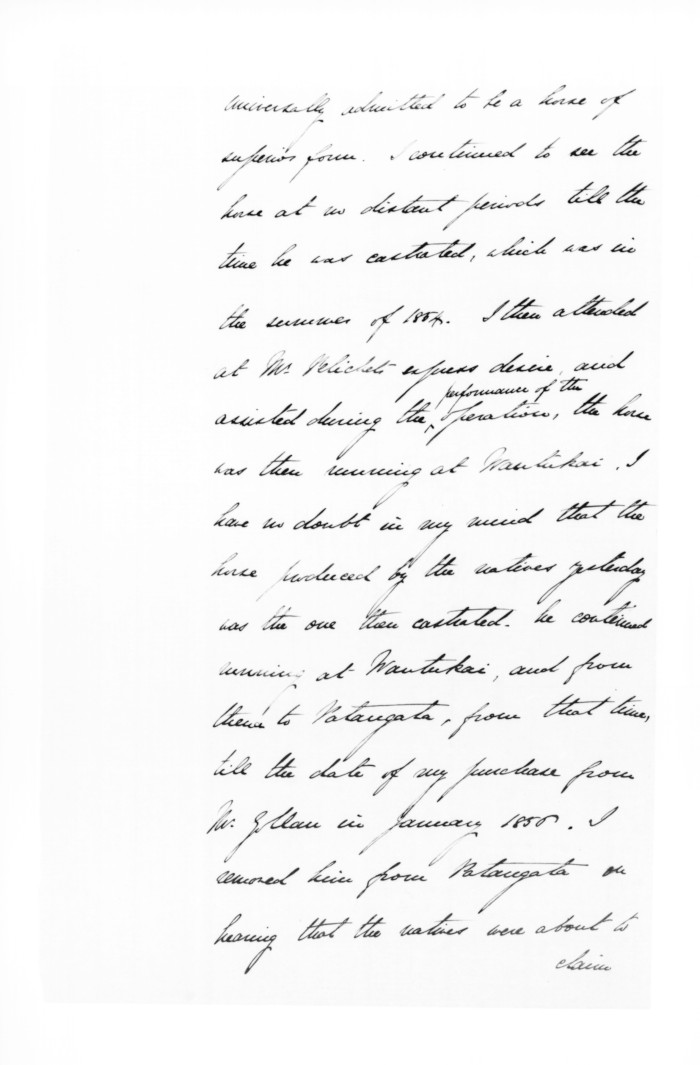 universally admitted to be a horse of
superior form. I continued to see the
horse at no distant periods till the
time he was castrated, which was in
the summer of 1854. I then attended
at Mr. express desire, and
performance of the
assisted during the operation, the horse
was then running at Wautukai. I
have no doubt in my mind that the
horse produced by the natives yesterday
was the one then castrated. he continued
running at Wautukai, and from
thence to Patangata, from that time,
till the date of my purchase from
Mr. Gollan in January 1856. I
removed him from Patangata on
hearing that the natives were about to
claim